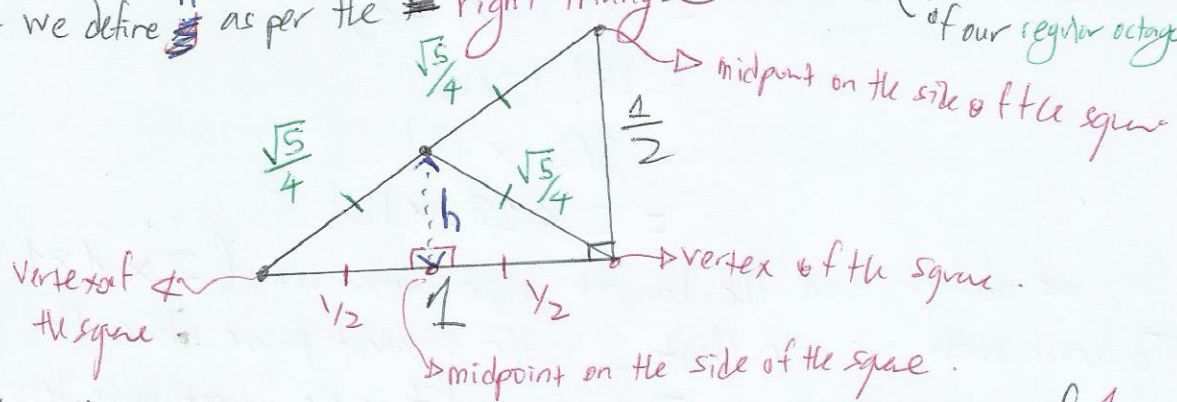 we define h as per the right triangle
of our regular octago
√5/4
midpoint on the side of the square
1/2
√5/4
√5/4
h
vertex of
the square .
vertex of the square .
1/2
1
1/2
midpoint on the side of the square .